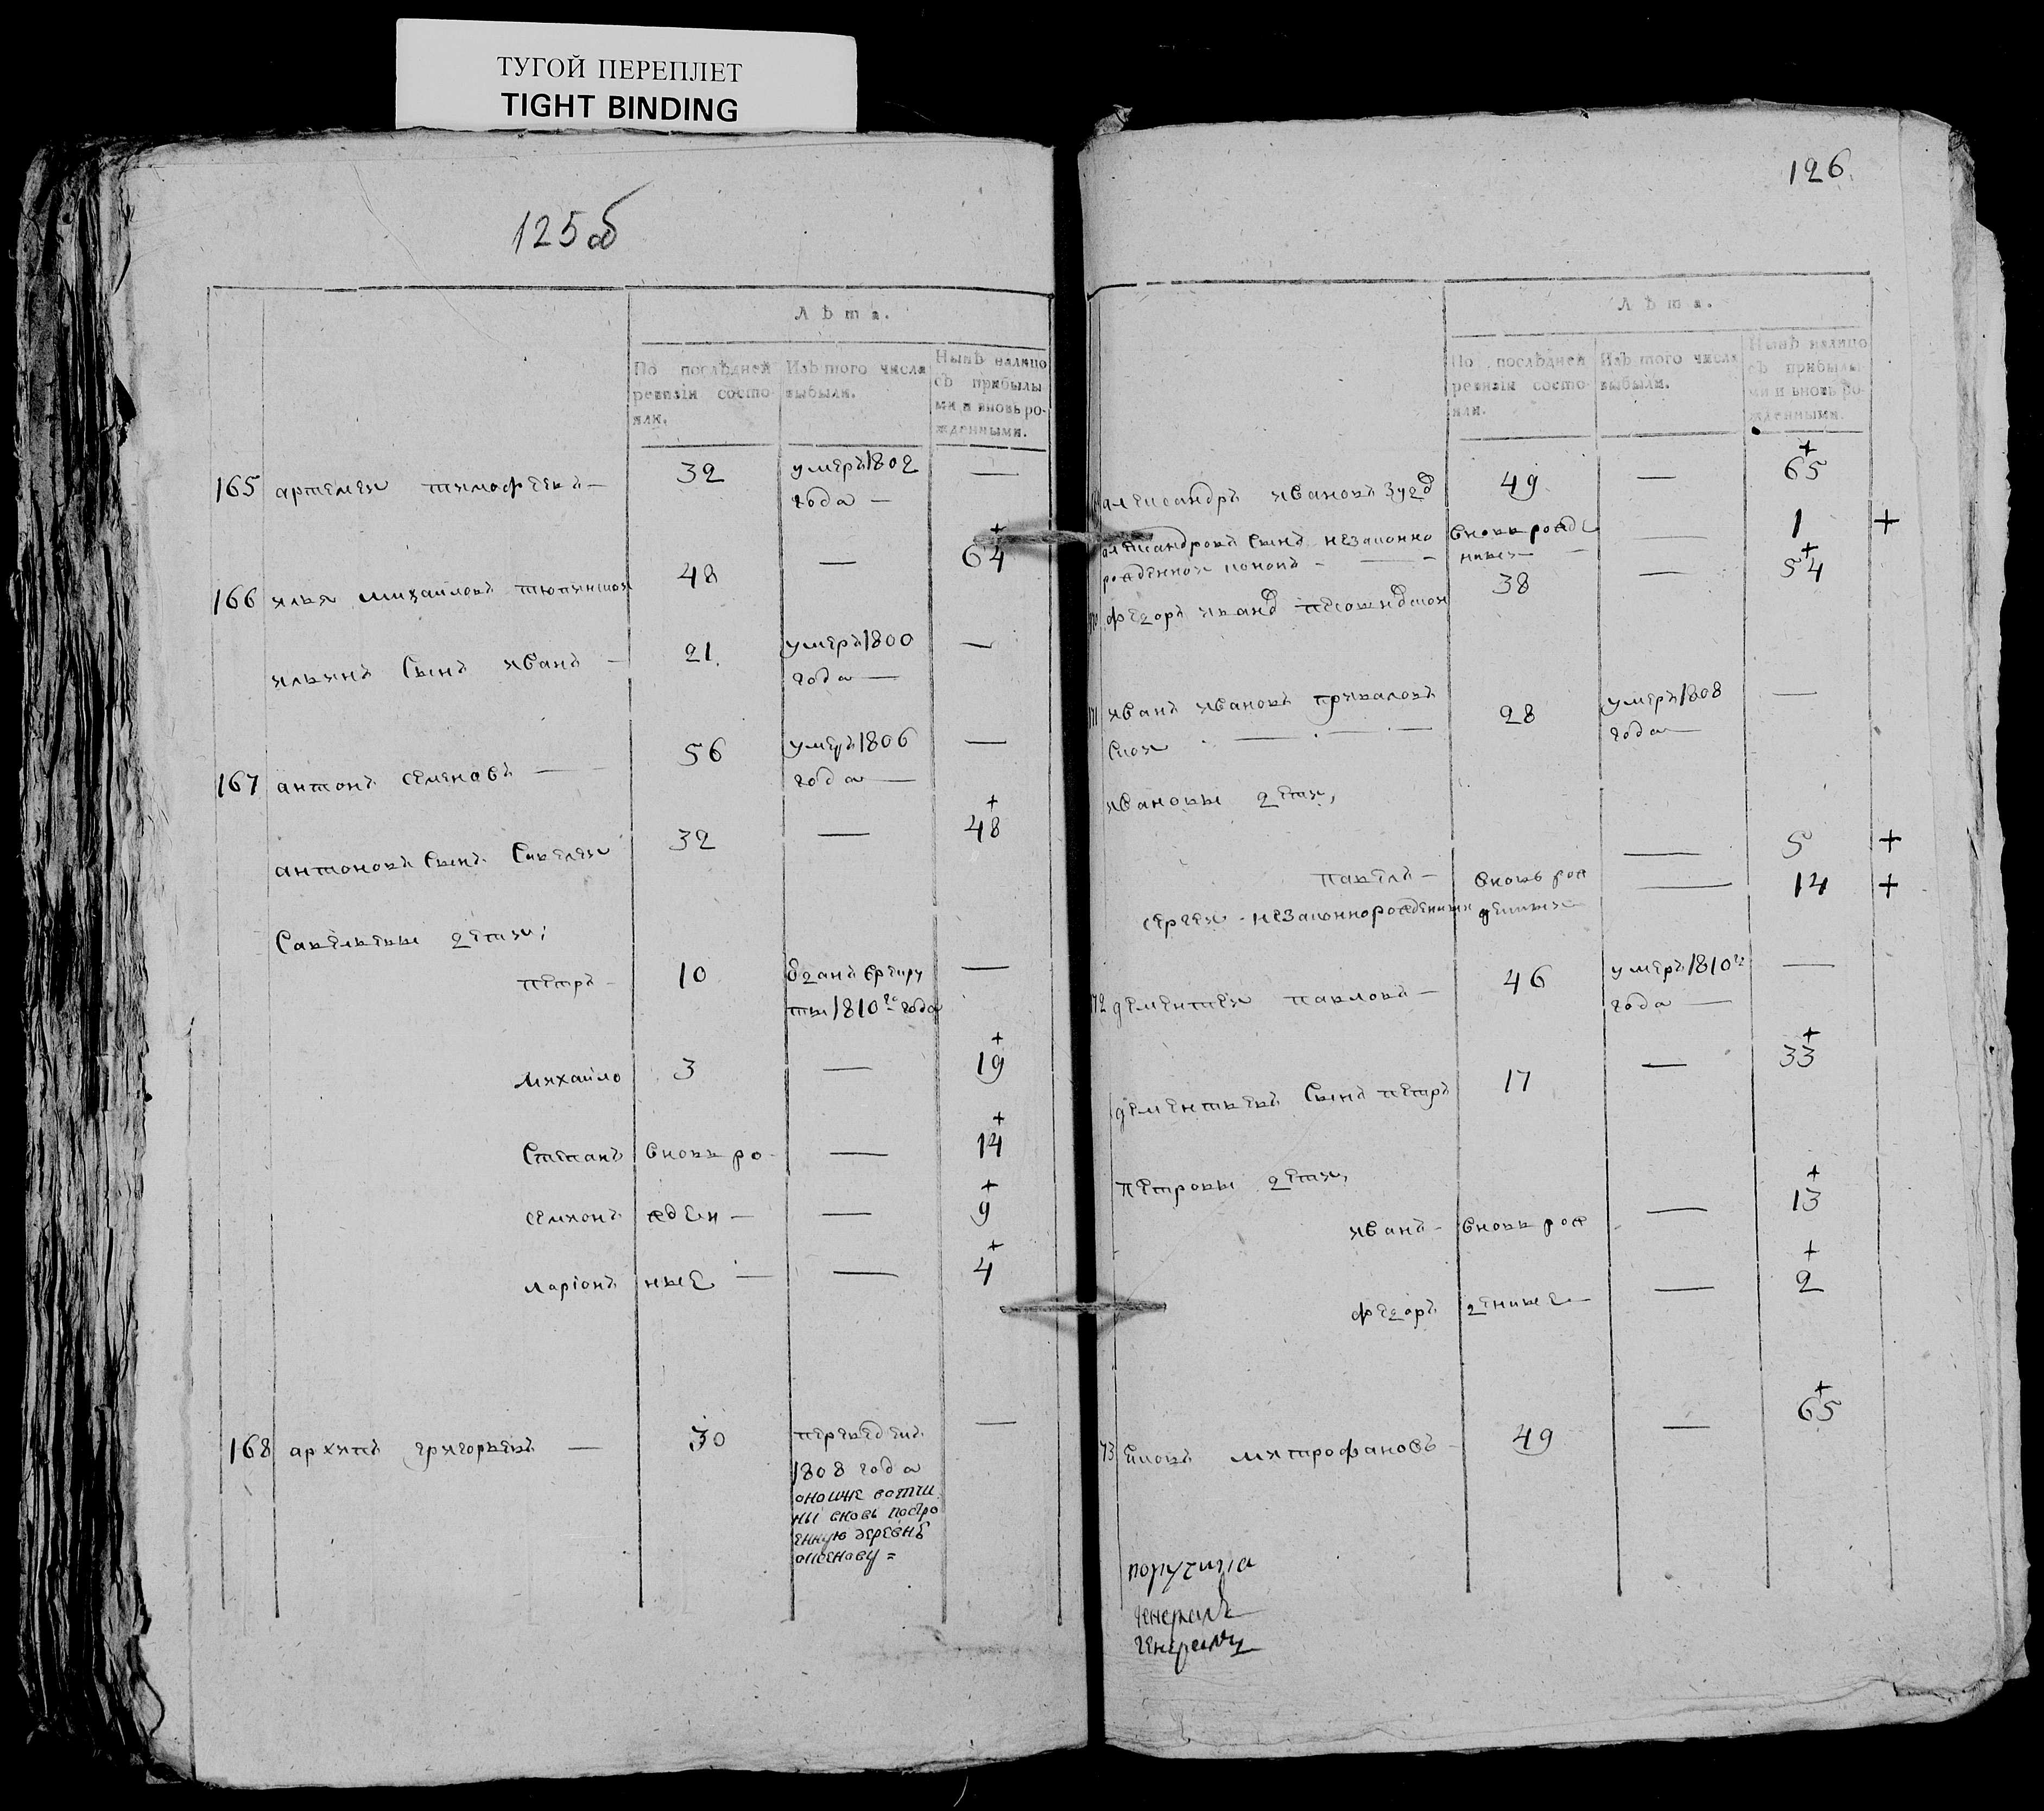 ТУГОЙ ПЕРЕПЛЕТ
TIGHT BINDING
125об
Лѣта.
По послѣдней ревизіи состояли.
Изъ того числа выбыли.
Нынѣ налицо съ прибылыми и вновь рожденными.
165 артемеи тимофеевъ — 32 умеръ 1802 —
года —
166 илья михаиловъ тюпинскои 48 — 64 +
ильинъ сынъ иванъ — 21 умеръ 1800 —
года —
167 антонъ семеновъ — 56 умеръ 1806 —
года —
антоновъ сынъ савелеи 32 — 48 +
савельевы дети;
петръ — 10 отданъ в рекру —
ты 1810го года
михаило 3 — 19 +
степанъ вновь ро — 14 +
семионъ жден — 9 +
ларіонъ ные — 4 +
168 архипъ григорьевъ — 30 переведенъ —
1808 года
оноиже вотчи
ны вновь постро
енную деревнѣ
126.
Лѣта.
По послѣдней ревизіи состояли.
Изъ того числа выбыли.
Нынѣ налицо съ прибылыми и вновь рожденными.
александръ ивановъ 49 — 65 +
александровъ сынъ незаконно вновь рожде — 1 +
рожденнои кононъ — нныи —
федоръ 38 — 54 +
иванъ ивановъ привалов 28 умеръ 1808 —
скои — года —
ивановы дети,
павелъ — вновь рож — 5 +
сергеи - незаконнорожденныи денные — 14 +
172 дементеи павловъ — 46 умеръ 1810го —
года —
дементьевъ сынъ петръ 17 — 33 +
петровы дети,
иванъ — вновь рож — 13 +
федоръ денные — 2 +
73 митрофановъ — 49 — 65 +
поручика
генералъ
генералу